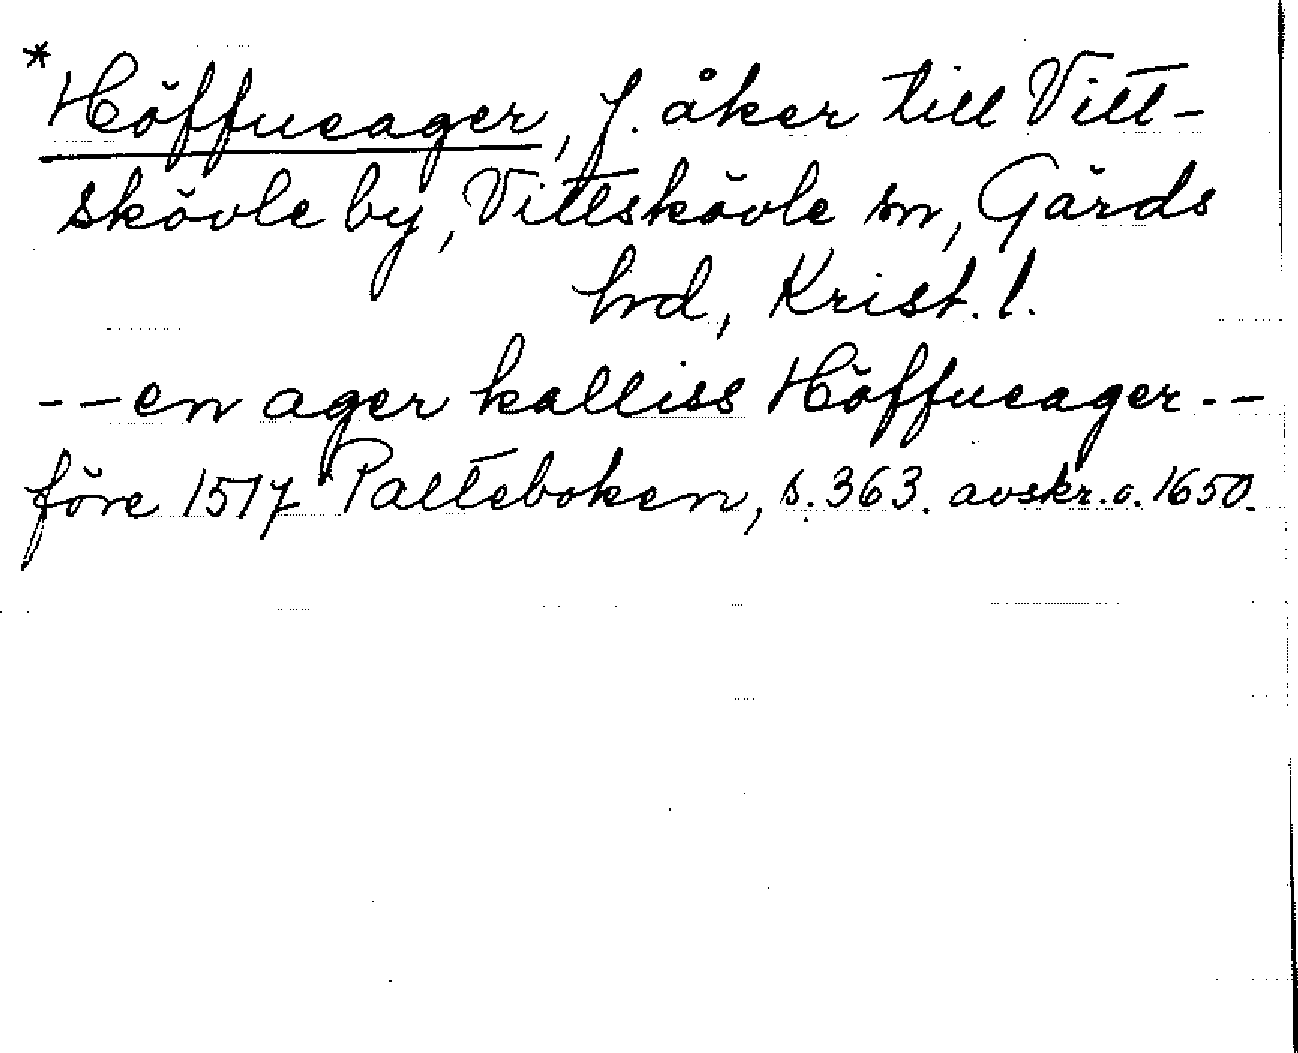 *Höffueager, f. åker till Vitt-
skövle by, Vittskövle sn, Gärds
hrd, Krist. l.
--en ager kalliss Höffueager--
före 1517 Palteboken, s. 363. avskr. o. 1650.